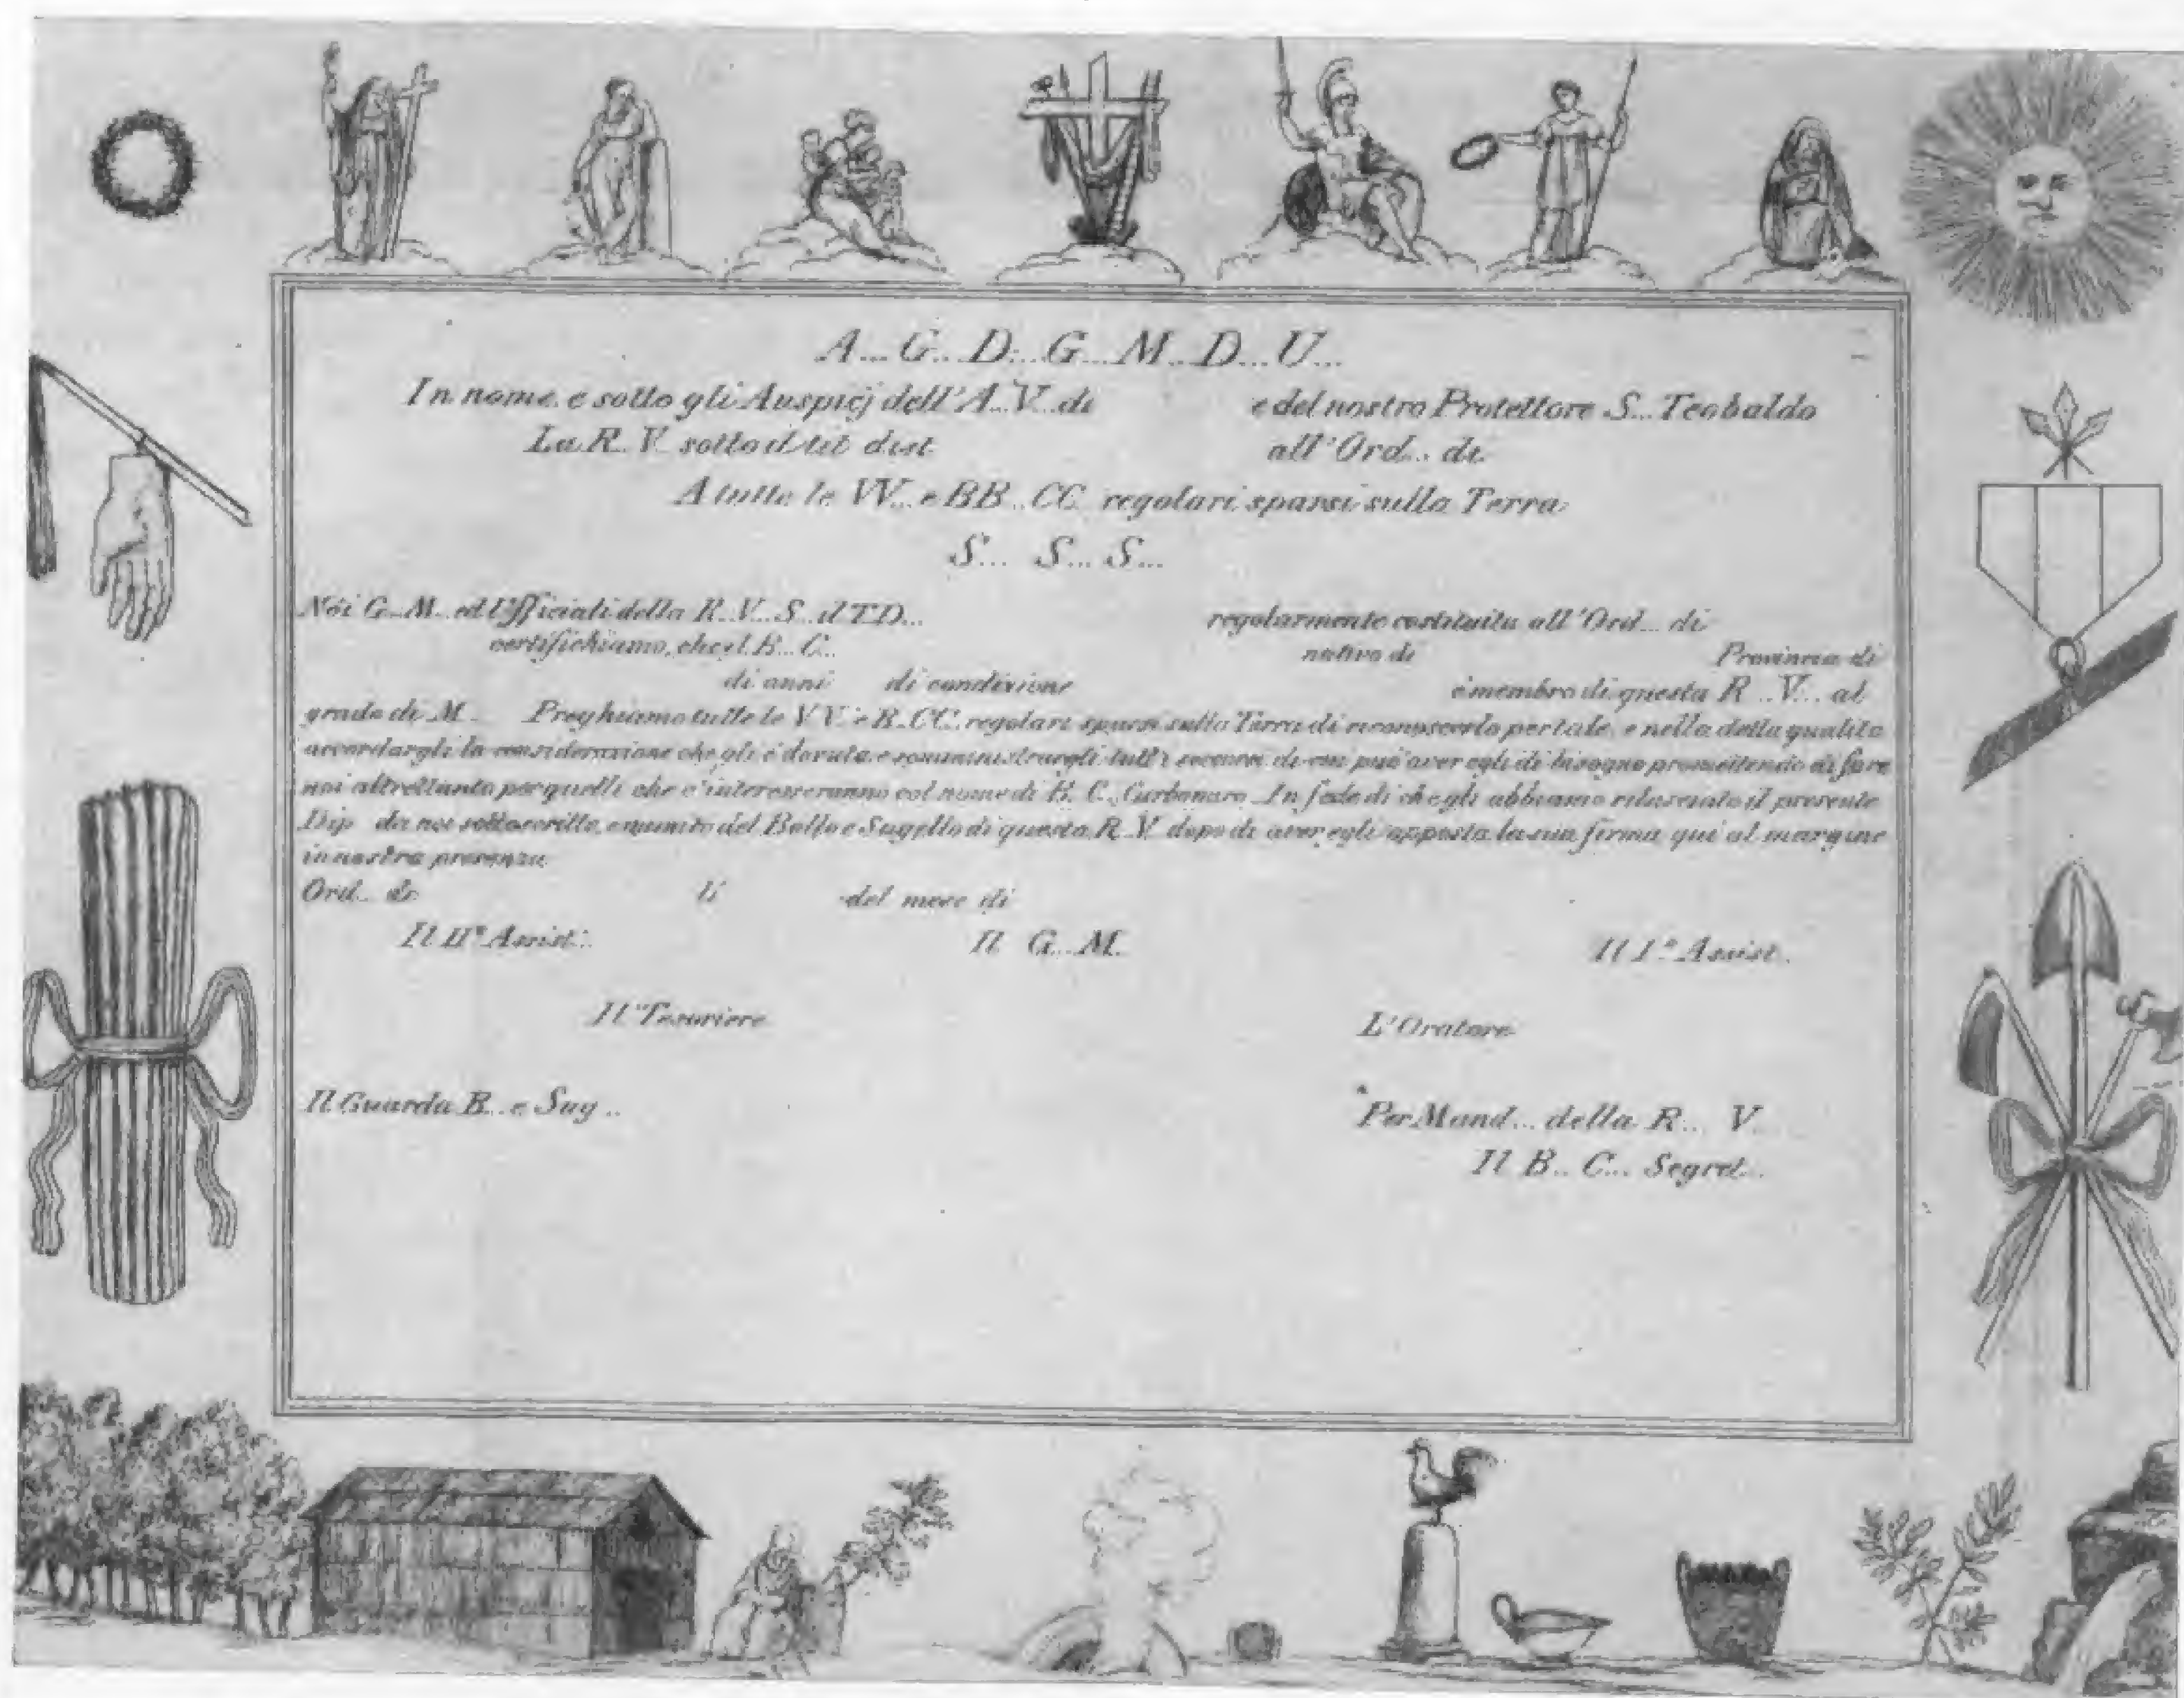 A... G... D... G... M... D... U...
In nome e sotto gli Auspicj dell'A...V...di e del nostro Protettore S... Teobaldo
La R...V... sotto il tit dist all'Ord... di
A tutte le VV... e BB...CC regolari sparsi sulla Terra
S... S... S...
Noi G...M... ed Ufficiali della R...V...S...il T D... regolarmente costituita all'Ord... di
certifichiamo, che il B... C... nativo di Provincia di
di anni di condizione è membro di questa R...V... al
grado di M... Preghiamo tutte le VV. e B..CC. regolari sparsi sulla Terra di riconoscerlo per tale, e nella detta qualità
accordargli la considerazione che gli è dovuta e somministrargli tutt'i soccorsi di cui può aver egli di bisogno promettendo di fare
noi altrettanto per quelli che c'interesseranno col nome di B. C., Carbonaro. In fede di che gli abbiamo rilasciato il presente
Dip da noi sottoscritto, e munito del Bollo e Sugello di questa R..V. dopo di aver egli apposta la sua firma qui al margine
in nostra presenza
Ord... di li del mese di
Il II.º Assist... Il G...M... Il I.º Assist...
Il Tesoriere L'Oratore
Il Guarda B... e Sug... Per Mand... della R... V...
Il B... C... Segret...